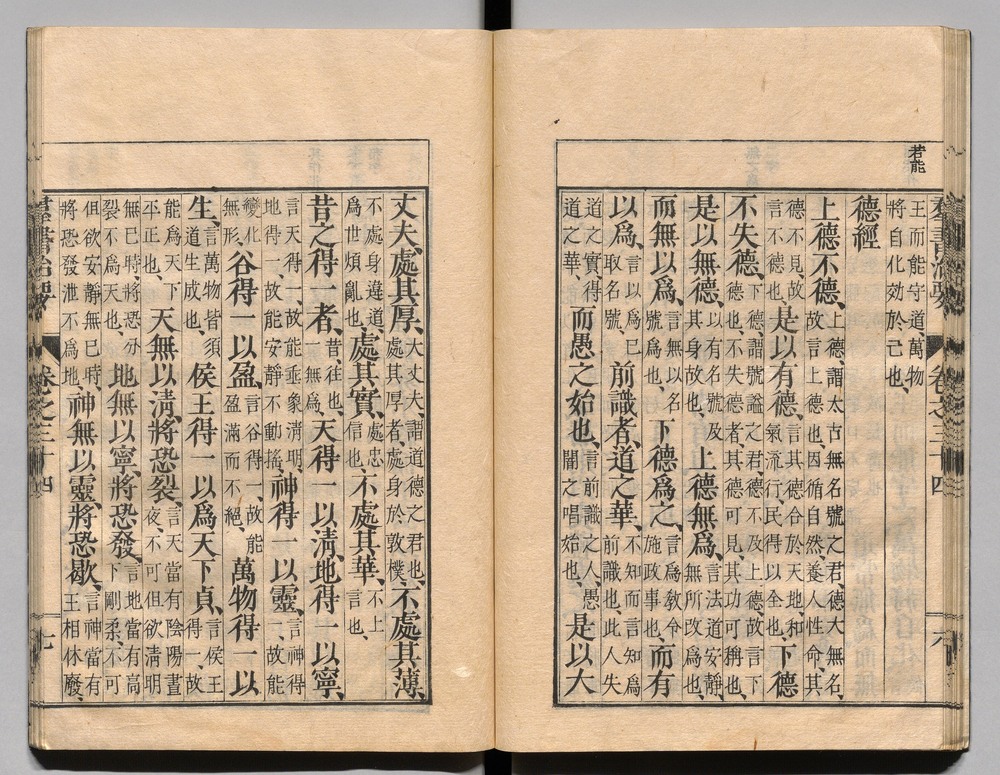 若能
羣書治要 卷之三十四 六
王而能守道、萬物
將自化効於己也、
德經
上德不德、上德、謂太古無名號之君、德大無名、故言上德也、因循自然、養人性命、其
德不見、故言不德也、是以有德、言其德合於天地、和氣流行、民得以全也、下德
不失德、下德謂號謚之君、德不及上德、故言下德也、不失德者、其德可見、其功可稱也、
是以無德、以有名號及其身故也、上德無爲、言法道安靜、無所改爲也、
而無以爲、言無以名號爲也、下德爲之、言爲教令施政事也、而有
以爲、言以爲己取名號、前識者、道之華、不知而言知爲前識也、此人失
道之實、得道之華、而愚之始也、言前識之人、愚闇之唱始也、是以大
丈夫、處其厚、大丈夫、謂道德之君也、處其厚者、處身於敦樸、不處其薄、
不處身違道、爲世煩亂也、處其實、處忠信也、不處其華、不上言也、
昔之得一者、昔、往也、一無爲、天得一以清、地得一以寧、
言天得一、故能垂象清明、地得一、故能安靜不動搖、神得一以靈、言神得一、故能
變化無形、谷得一以盈、言谷得一、故能盈滿而不絕、萬物得一以
生、言萬物皆須道生成也、侯王得一以爲天下貞、言侯王得一、故
能爲天下平正也、天無以清、將恐裂、言天當有陰陽晝夜、不可但欲清明
無已時、將恐分裂不爲天也、地無以寧、將恐發、言地當有高下剛柔、不可
但欲安靜無已時、將恐發泄不爲地、神無以靈、將恐歇、言神當有王相休廢、不可
羣書治要 卷之三十四 七